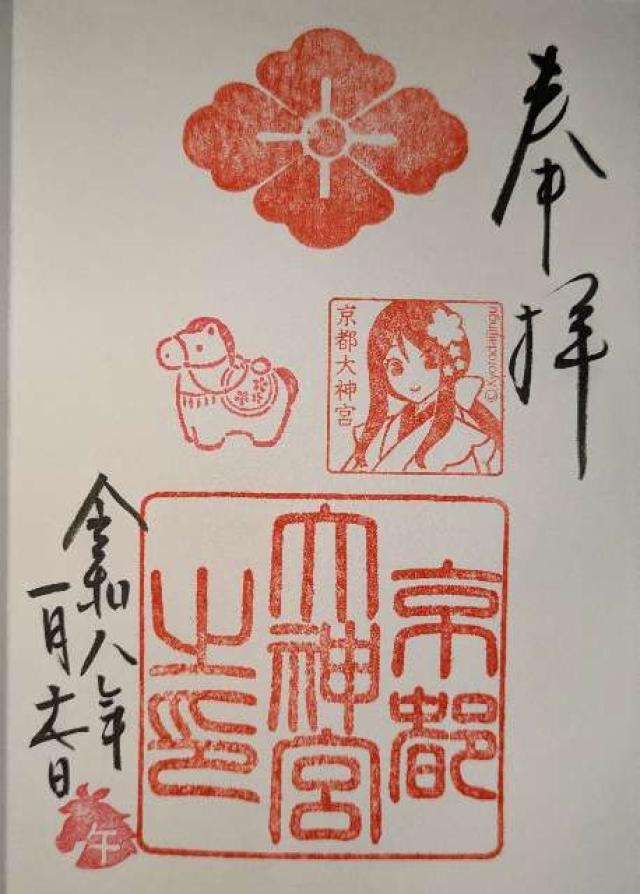 奉拝
京都大神宮
©kyotodaijingu
京都
大神宮
之印
令和八年
一月十六日
午